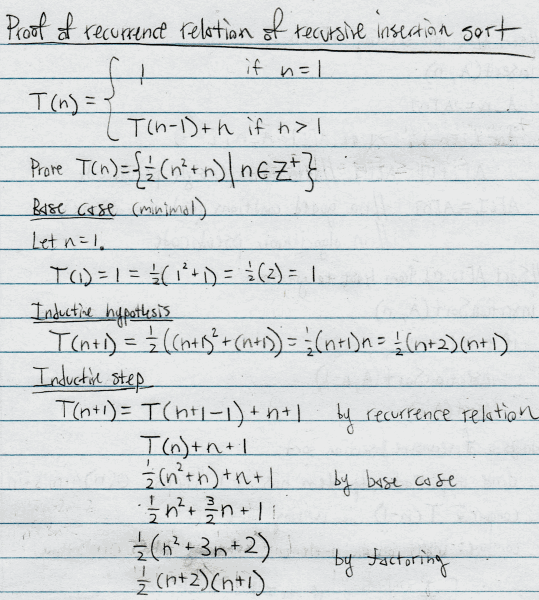 Proof of recurrence relation of recursive insertion sort
T(n) = { 1 if n = 1
T(n-1) + n if n > 1
Prove T(n) = {½(n² + n) | n ∈ Z⁺}
Base case (minimal)
Let n = 1.
T(1) = 1 = ½(1² + 1) = ½(2) = 1
Inductive hypothesis
T(n+1) = ½((n+1)² + (n+1)) = ½(n+1)n = ½(n+2)(n+1)
Inductive step
T(n+1) = T(n+1-1) + n+1 by recurrence relation
T(n) + n + 1
½(n² + n) + n + 1 by base case
½n² + 3/2 n + 1
½(n² + 3n + 2)
by factoring
½(n+2)(n+1)